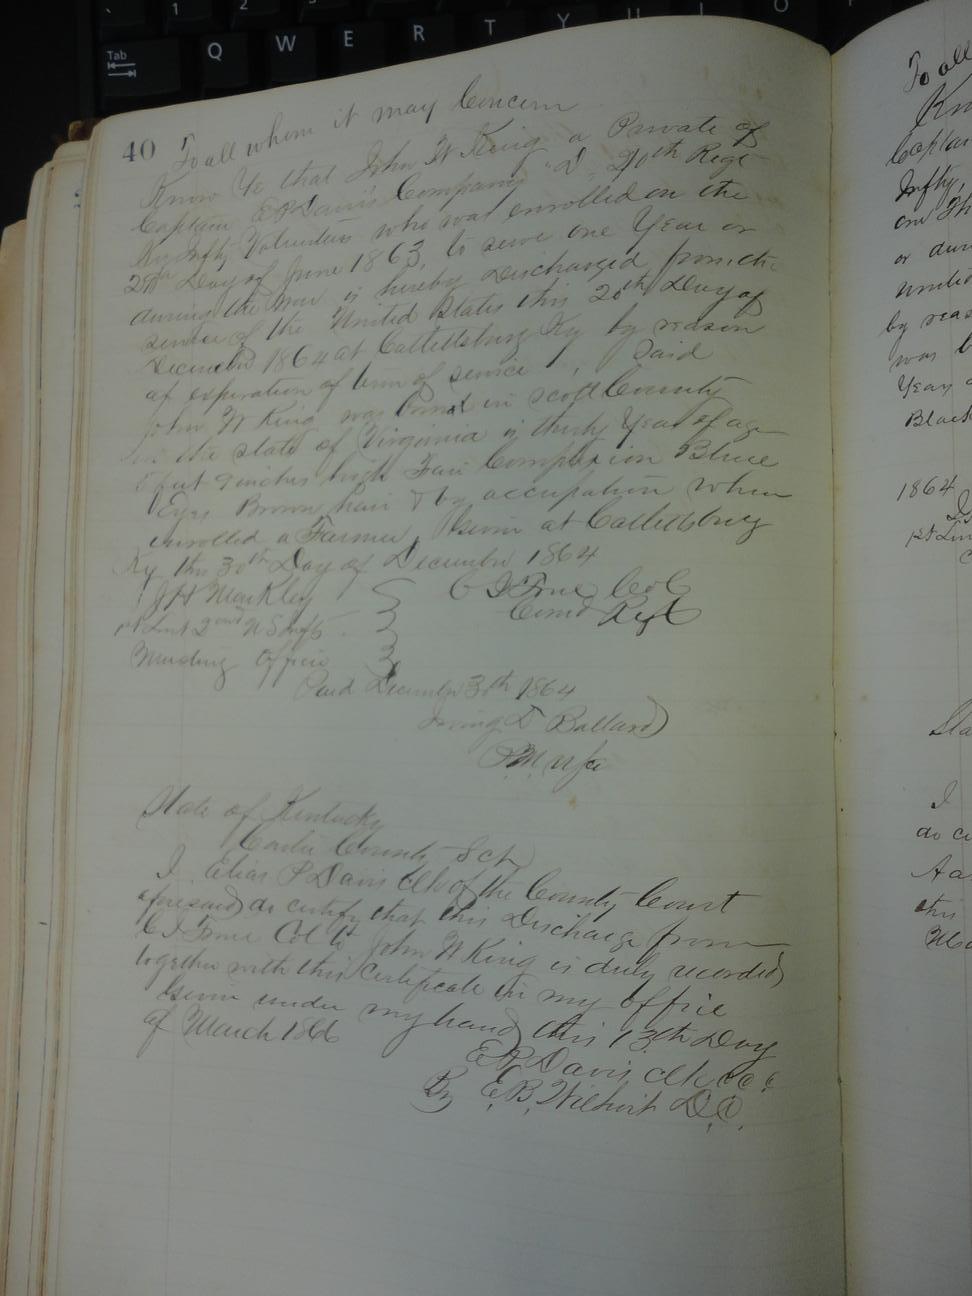 40 To all whom it may Concern
Know Ye that John W King a Private of
Captain E P Davis Company "D" 40th Regt
Ky Infty Volunteers who was enrolled on the
Day of June 1863, to serve one Year or
during the war is hereby Discharged from the
service of the United States this 20th Day of
December 1864 at Catlettsburg Ky by reason
of expiration of term of service , Said
John W King was born in Scott County
in the state of Virginia is thirty Year of age
5 feet 9 inches high Fair Complexion Blue
Eyes Brown hair & by occupation when
enrolled a Farmer Given at Catlettsburg
Ky this 30th Day of December 1864
J H Markley C J True Col
1st Lieut 2nd Comd Regt
Mustring Officer
Paid December 30th 1864
Irving D Ballard
P.M. USA
State of Kentucky
Carter County Sct
I Elias P Davis Clk of the County Court
aforesaid do certify that this Discharge from
C J True Col to John W King is duly recorded
together with this Certificate in my office
Given under my hand this 13th Day
of March 1866
E P Davis Clk C C C
By E. B. Wilhoit D.C.
To all
Kn
Captai
Infty,
one Th
or duri
united
by reas
was b
Year o
Black
1864
1st Lieu
Sta
I
do ce
this
Tab
Q W E R T Y U I
1 2